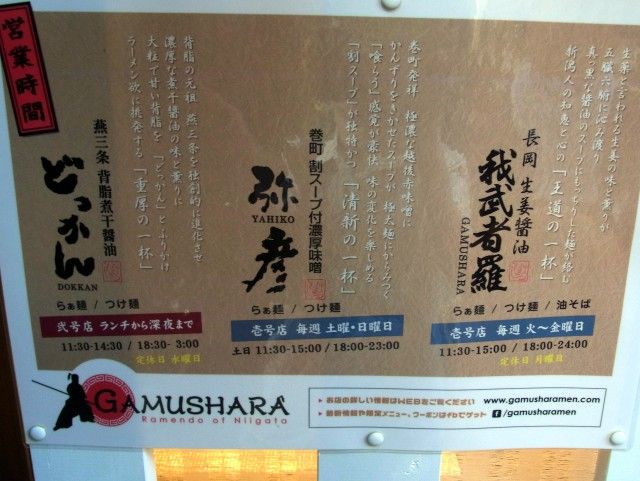 営業時間
生薬と言われる生姜の味と薫りが
五臓六腑に沁み渡り
真っ黒な醤油のスープにもっちりした麺が絡む
新潟人の知恵と心の「王道の一杯」
長岡 生姜醤油
我武者羅
GAMUSHARA
らぁ麺 / つけ麺 / 油そば
壱号店 毎週 火〜金曜日
11:30-15:00 / 18:00-24:00
定休日 月曜日
巻町発祥 極濃な越後赤味噌に
かんずりをきかせたスープが極太麺にからみつく
「喰らう」感覚が豪快 味の変化を楽しめる
「割スープ」が独特かつ「清新の一杯」
巻町 割スープ付濃厚味噌
弥彦
YAHIKO
らぁ麺 / つけ麺
壱号店 毎週 土曜・日曜日
土日 11:30-15:00 / 18:00-23:00
背脂の元祖 燕三条を独創的に進化させ
濃厚な煮干醤油の味と薫りに
大粒で甘い背脂を「どっかん」とふりかけ
ラーメン欲に挑発する「重厚の一杯」
燕三条 背脂煮干醤油
どっかん
DOKKAN
らぁ麺 / つけ麺
弐号店 ランチから深夜まで
11:30-14:30 / 18:30- 3:00
定休日 水曜日
GAMUSHARA
Ramendo of Niigata
お店の詳しい情報はWEBをご覧ください www.gamusharamen.com
最新情報や限定メニュー、クーポンはfbでゲット f/gamusharamen